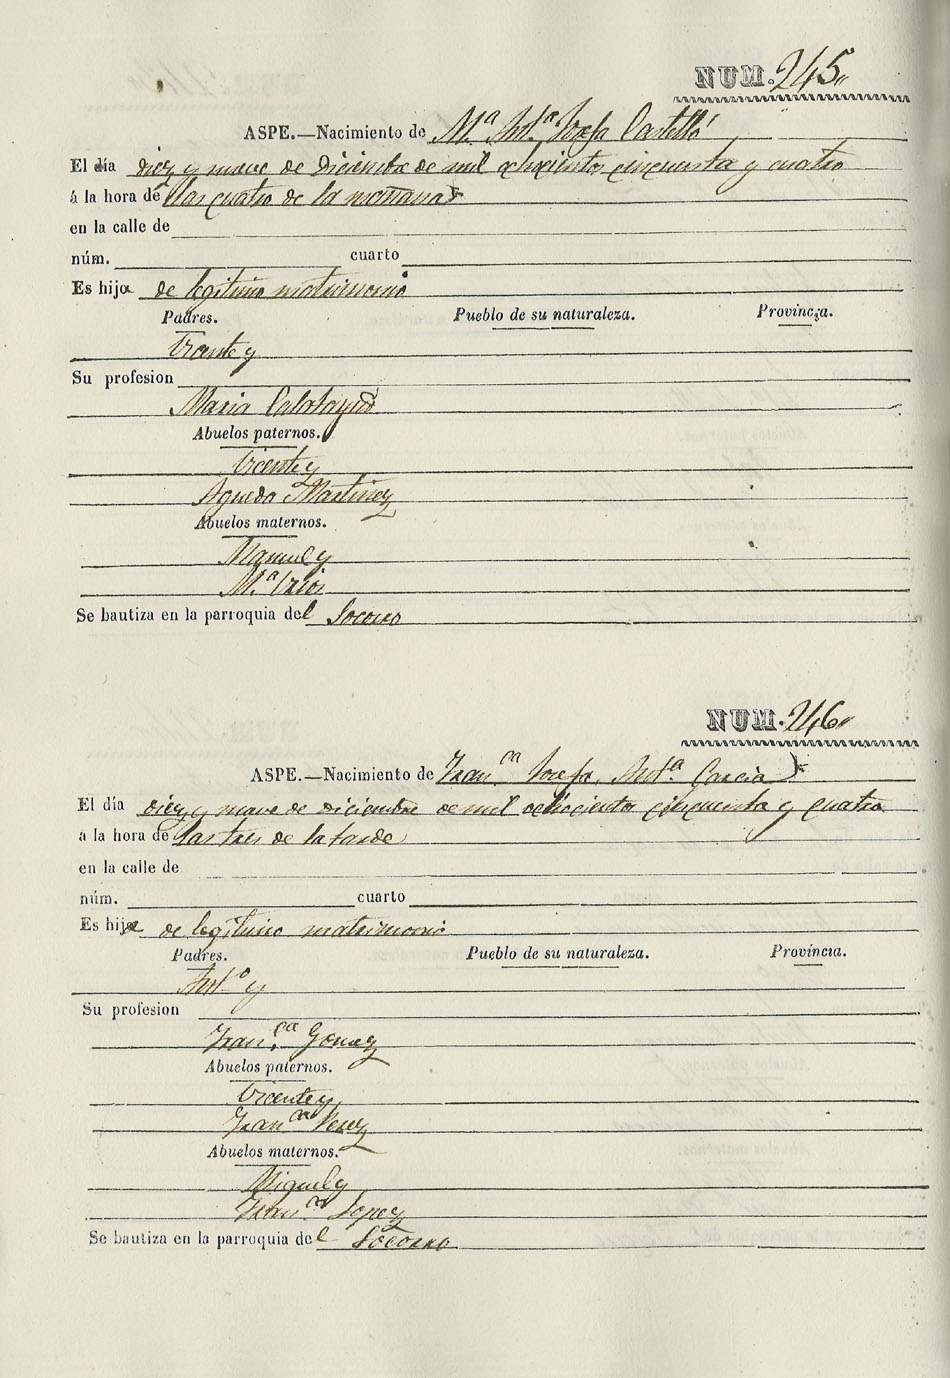 NUM. 245
ASPE.—Nacimiento de Mª Antª Josefa Castelló
El día diez y nueve de Diciembre de mil ochocientos cincuenta y cuatro
á la hora de las cuatro de la mañana
en la calle de
núm. cuarto
Es hija de legitimo matrimonio
Padres. Pueblo de su naturaleza. Provincia.
Vicente y
Su profesion
Maria Calatayud
Abuelos paternos.
Vicente y
Agueda Martinez
Abuelos maternos.
Manuel y
Mª
Se bautiza en la parroquia del Socorro
NUM. 246
ASPE.—Nacimiento de Franca Josefa Antª Garcia
El día diez y nueve de diciembre de mil ochocientos cincuenta y cuatro
a la hora de las tres de la tarde
en la calle de
núm. cuarto
Es hija de legitimo matrimonio
Padres. Pueblo de su naturaleza. Provincia.
Antº y
Su profesion
Franca Gomez
Abuelos paternos.
Vicente y
Franca Perez
Abuelos maternos.
Miguel y
Franca Lopez
Se bautiza en la parroquia del Socorro